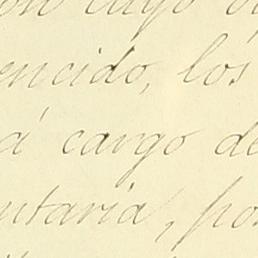 cuyo
encido, los
á cargo de
ntaria, po